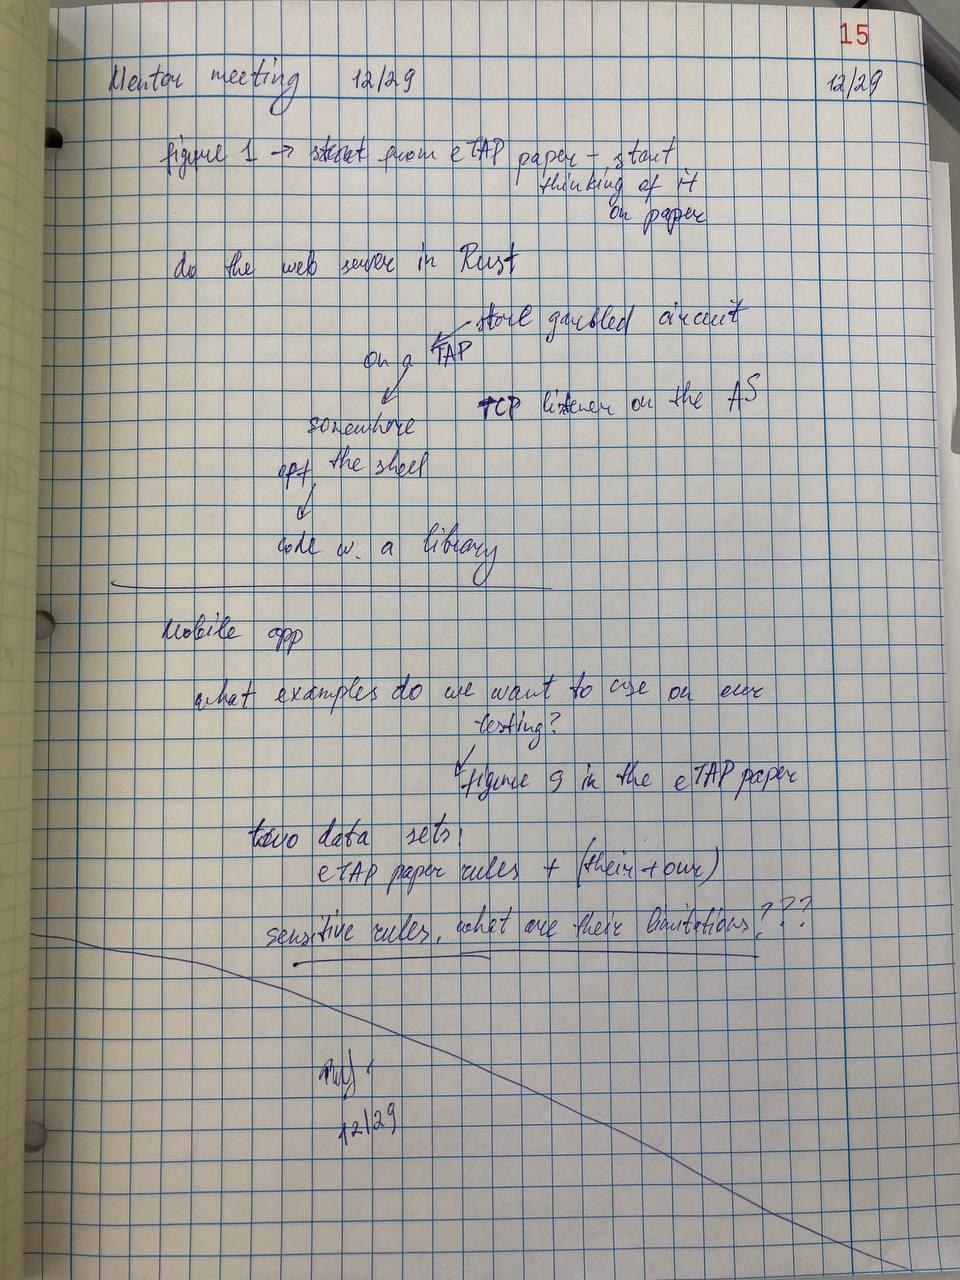 15
Mentor meeting 12/29 12/29
figure 1 → start from eTAP paper - start
thinking of it
on paper
do the web server in Rust
store garbled circuit
on a TAP
TCP listener on the AS
somewhere
off the shelf
code w. a library
Mobile app
what examples do we want to use on our
testing?
figure 9 in the eTAP paper
two data sets:
eTAP paper rules + (their + our)
sensitive rules, what are their limitations???
12/29